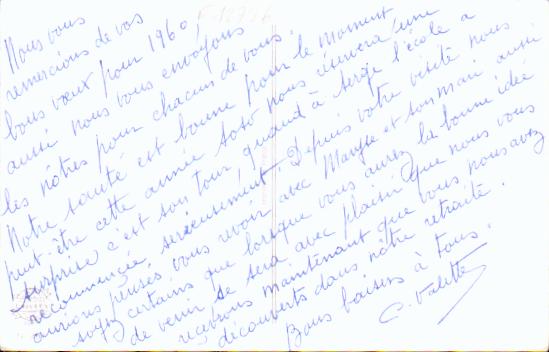 Nous vous
remercions de vos
bons vœux pour 1960
aussi nous vous envoyons
les nôtres pour chacun de vous.
Notre santé est bonne pour le moment
peut-être cette année Soso nous réservera une
surprise c'est son tour, quand à Serge l'école a
recommencée sérieusement. Depuis votre visite nous
aurions pensés vous revoir avec Maryse et son mari aussi
soyez certains que lorsque vous aurez la bonne idée
de venir se sera avec plaisir que nous vous
recevrons maintenant que vous nous avez
découverts dans nôtre retraite.
Bons baisers à tous.
C. Valette